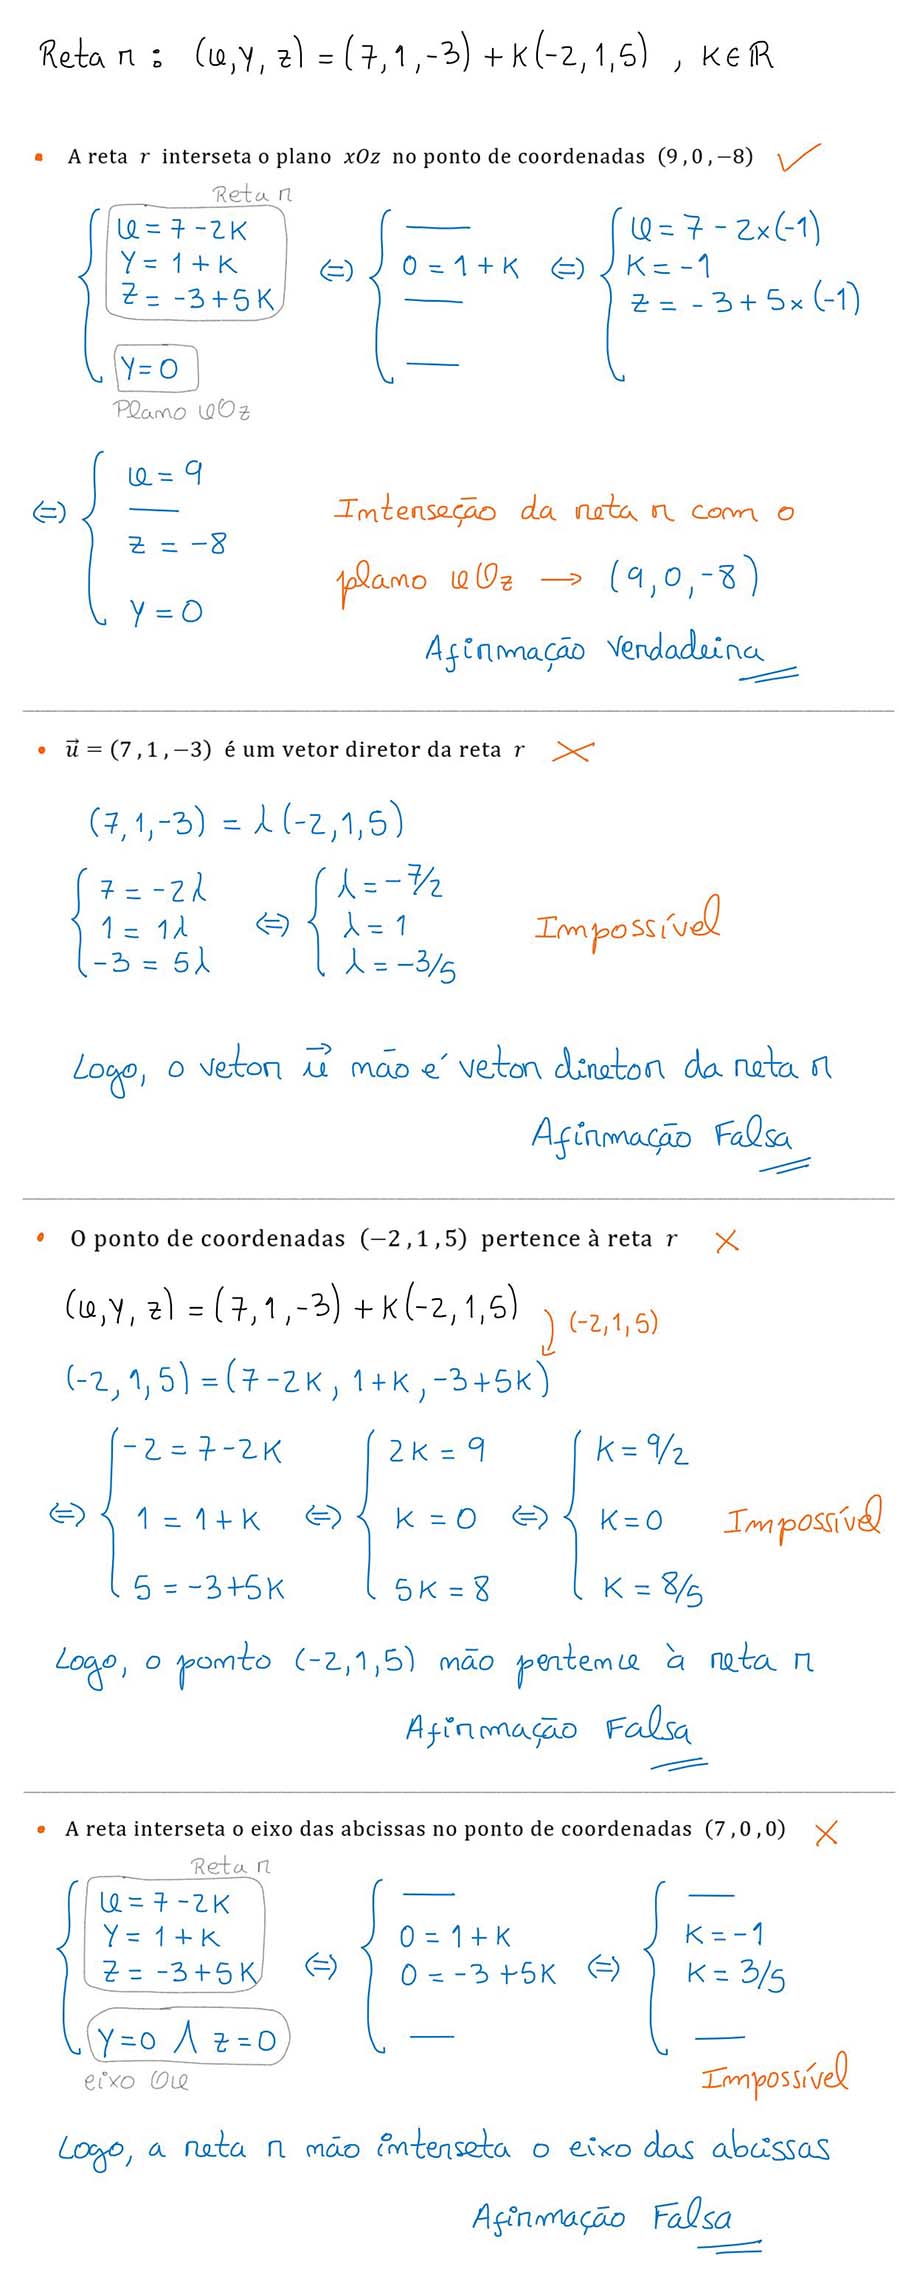 Reta r : (x, y, z) = (7, 1, -3) + k(-2, 1, 5) , k∈ℝ
• A reta r interseta o plano xOz no ponto de coordenadas (9, 0, −8) ✓
Reta r
{ x = 7 - 2k
y = 1 + k
z = -3 + 5k
y = 0
Plano xOz
⇔ { ___
0 = 1 + k
___
___
⇔ { x = 7 - 2×(-1)
k = -1
z = -3 + 5×(-1)
⇔ { x = 9
___
z = -8
y = 0
Interseção da reta r com o
plano xOz → (9, 0, -8)
Afirmação Verdadeira
• u⃗ = (7, 1, −3) é um vetor diretor da reta r ✗
(7, 1, -3) = λ(-2, 1, 5)
{ 7 = -2λ
1 = 1λ
-3 = 5λ
⇔ { λ = -7/2
λ = 1
λ = -3/5
Impossível
Logo, o vetor u⃗ não é vetor diretor da reta r
Afirmação Falsa
• O ponto de coordenadas (−2, 1, 5) pertence à reta r ✗
(x, y, z) = (7, 1, -3) + k(-2, 1, 5)
(-2, 1, 5)
(-2, 1, 5) = (7 - 2k, 1 + k, -3 + 5k)
⇔ { -2 = 7 - 2k
1 = 1 + k
5 = -3 + 5k
⇔ { 2k = 9
k = 0
5k = 8
⇔ { k = 9/2
k = 0
k = 8/5
Impossível
Logo, o ponto (-2, 1, 5) não pertence à reta r
Afirmação Falsa
• A reta interseta o eixo das abcissas no ponto de coordenadas (7, 0, 0) ✗
Reta r
{ x = 7 - 2k
y = 1 + k
z = -3 + 5k
y = 0 ∧ z = 0
eixo Ox
⇔ { ___
0 = 1 + k
0 = -3 + 5k
___
⇔ { ___
k = -1
k = 3/5
___
Impossível
Logo, a reta r não interseta o eixo das abcissas
Afirmação Falsa